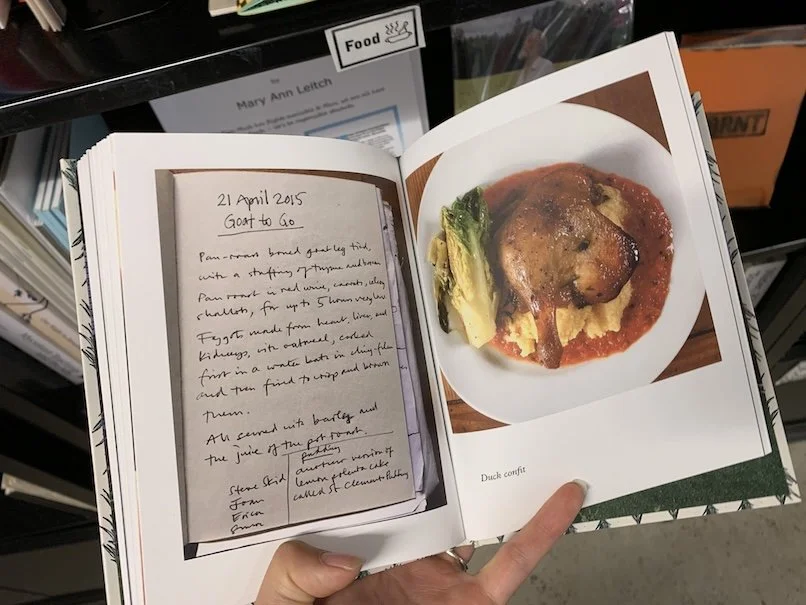 Food
Mary Ann Leitch
BRNT
21 April 2015
Goat to Go
Pan-roast boned goat leg tied,
with a stuffing of thyme and
Pan roast in red wine, carrots, celery
shallots, for up to 5 hours very low
Faggots made from heart, liver, and
Kidneys, with oatmeal, cooked
first in a water bath in cling-film
and then fried to crisp and brown
them.
All served with barley and
the juice of the pot roast.
pudding
another version of
lemon polenta cake
called St Clements Pudding
Steve Skid
Joan
Erica
Simon
Duck confit